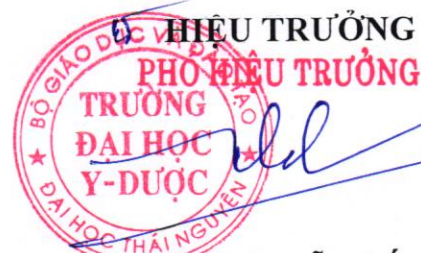 HIỆU TRƯỞNG
PHÓ HIỆU TRƯỞNG
BỘ GIÁO DỤC VÀ ĐÀO TẠO
TRƯỜNG
ĐẠI HỌC
Y-DƯỢC
ĐẠI HỌC THÁI NGUYÊN